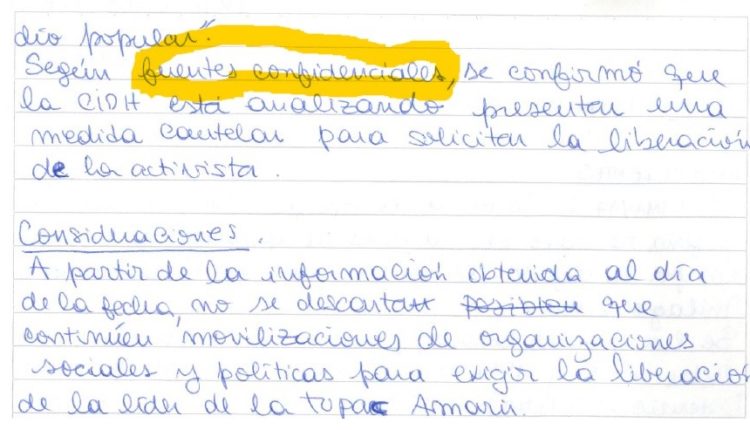 dio popular".
Según fuentes confidenciales, se confirmó que
la CIDH está analizando presentar una
medida cautelar para solicitar la liberación
de la activista.
Consideraciones.
A partir de la información obtenida al día
de la fecha, no se descartan posibles que
continúen movilizaciones de organizaciones
sociales y políticas para exigir la liberación
de la líder de la Tupac Amaru.